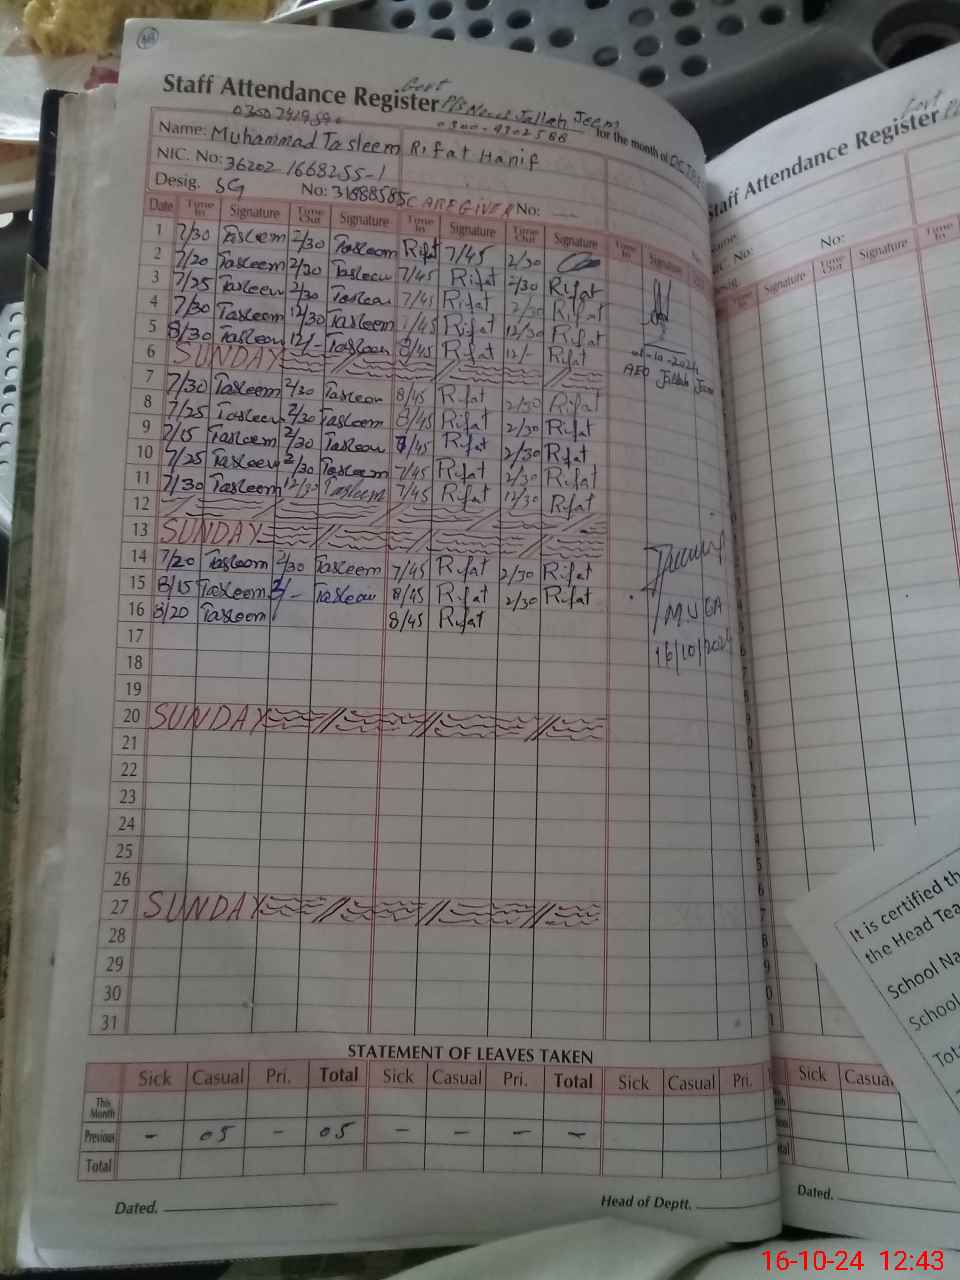 Govt P/S Jallah Jeem
Staff Attendance Register for the month of
0300-4302588
Name: Muhammad Tasleem Rifat Hanif
NIC. No: 36202-1668255-1
Desig. SG No: 31888585 CAREGIVER No:
Date Time In Signature Time Out Signature Time In Signature Time Out Signature Time In Signature
1 7/30 Tasleem 2/30 Tasleem Rifat 7/45 2/30
2 7/20 Tasleem 2/30 Tasleem 7/45 Rifat 2/30 Rifat
3 7/25 Tasleem 2/30 Tasleem 7/45 Rifat 2/30 Rifat
4 7/30 Tasleem 12/30 Tasleem 7/45 Rifat 12/30 Rifat
5 8/30 Tasleem 12/- Tasleem 8/45 Rifat 12/- Rifat
6 SUNDAY
AEO Jallah Jeem
7 7/30 Tasleem 2/30 Tasleem 8/45 Rifat 2/30 Rifat
8 7/25 Tasleem 2/30 Tasleem 8/45 Rifat 2/30 Rifat
9 7/15 Tasleem 2/30 Tasleem 8/45 Rifat 2/30 Rifat
10 7/25 Tasleem 2/30 Tasleem 7/45 Rifat 2/30 Rifat
11 7/30 Tasleem 12/30 Tasleem 7/45 Rifat 12/30 Rifat
12
13 SUNDAY
14 7/20 Tasleem 2/30 Tasleem 7/45 Rifat 2/30 Rifat
15 8/15 Tasleem 2/- Tasleem 8/45 Rifat 2/30 Rifat
16 8/20 Tasleem 8/45 Rifat
16/10/2024
17
18
19
20 SUNDAY
21
22
23
24
25
26
27 SUNDAY
28
29
30
31
STATEMENT OF LEAVES TAKEN
Sick Casual Pri. Total Sick Casual Pri. Total Sick Casual Pri.
This Month
Previous - 05 - 05 - - - -
Total
Dated. Head of Deptt.
Staff Attendance Register
No:
Signature Time Out Signature Time In
It is certified th
the Head Tea
School Na
School
Tota
Sick Casua
Dated.
16-10-24 12:43